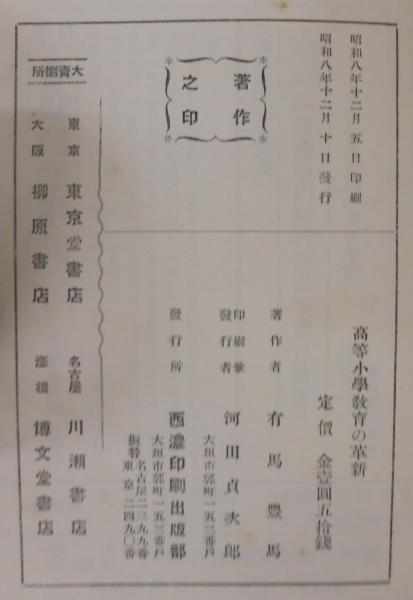 昭和八年十二月五日印刷
昭和八年十二月十日發行
著作
之印
高等小學敎育の革新
定價 金壹圓五拾錢
著作者 有馬豊馬
印刷兼
發行者 河田貞次郎
大垣市郭町一五三番戶
發行所 西濃印刷出版部
大垣市郭町一五三番戶
名古屋二三九九番
振替東京二四九〇番
大賣捌所
東京 東京堂書店
名古屋 川瀬書店
大阪 柳原書店
彥根 博文堂書店